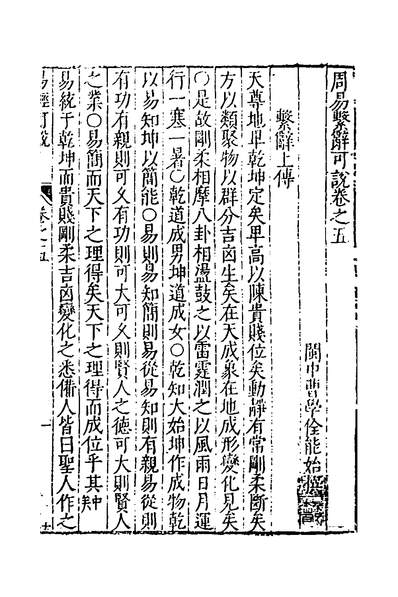 周易繫辭可說卷之五
閩中曹學佺能始撰
繫辭上傳
天尊地卑乾坤定矣卑高以陳貴賤位矣動靜有常剛柔斷矣
方以類聚物以群分吉凶生矣在天成象在地成形變化見矣
○是故剛柔相摩八卦相盪鼓之以雷霆潤之以風雨日月運
行一寒一暑○乾道成男坤道成女○乾知大始坤作成物乾
以易知坤以簡能○易則易知簡則易從易知則有親易從則
有功有親則可久有功則可大可久則賢人之德可大則賢人
之業○易簡而天下之理得矣天下之理得而成位乎其中矣
易統于乾坤而貴賤剛柔吉凶變化之悉備人皆曰聖人作之
易經可說
卷之五
一